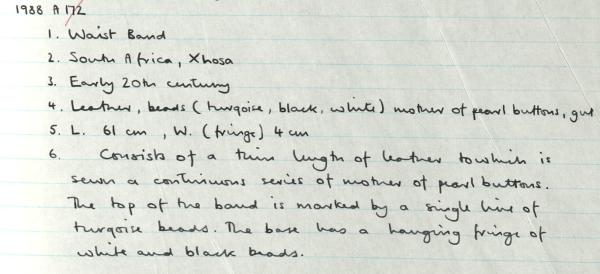 1988 A 172
1. Waist Band
2. South Africa, Xhosa
3. Early 20th century
4. Leather, beads (turqoise, black, white) mother of pearl buttons, gut
5. L. 61 cm, W. (fringe) 4 cm
6. Consists of a thin length of leather to which is
sewn a continuous series of mother of pearl buttons.
The top of the band is marked by a single line of
turqoise beads. The base has a hanging fringe of
white and black beads.